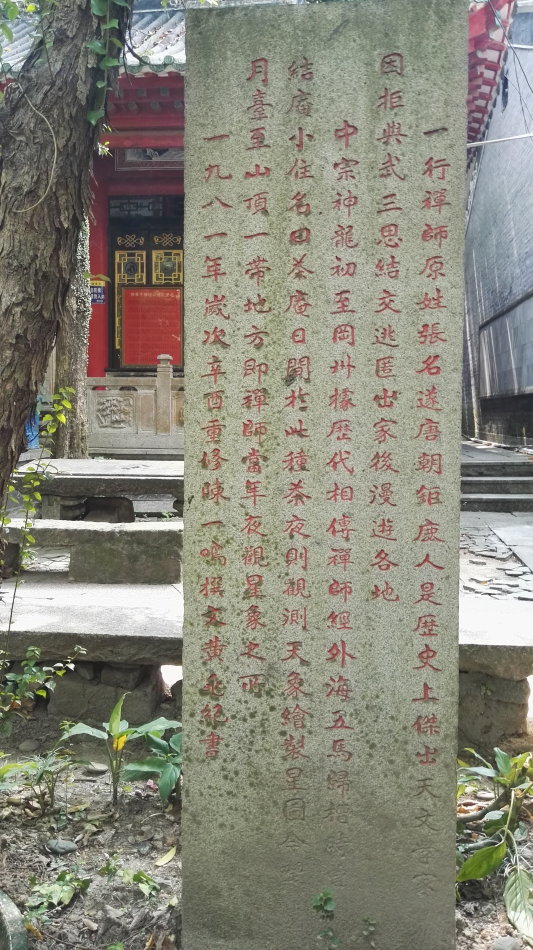 一行禪師原姓張名遂唐朝鉅鹿人是歷史上傑出天文
因拒與武三思結交逃匿出家後漫遊各地
中宗神龍初至岡州據歷代相傳禪師經外海五馬歸槽
結庵小住名曰茶庵日間於此種茶夜則觀測天象繪製星圖今
月臺至山頂一帶地方即禪師當年夜觀星象之所
一九八一年歲次辛酉重修陳一鳴撰文黃 紀書